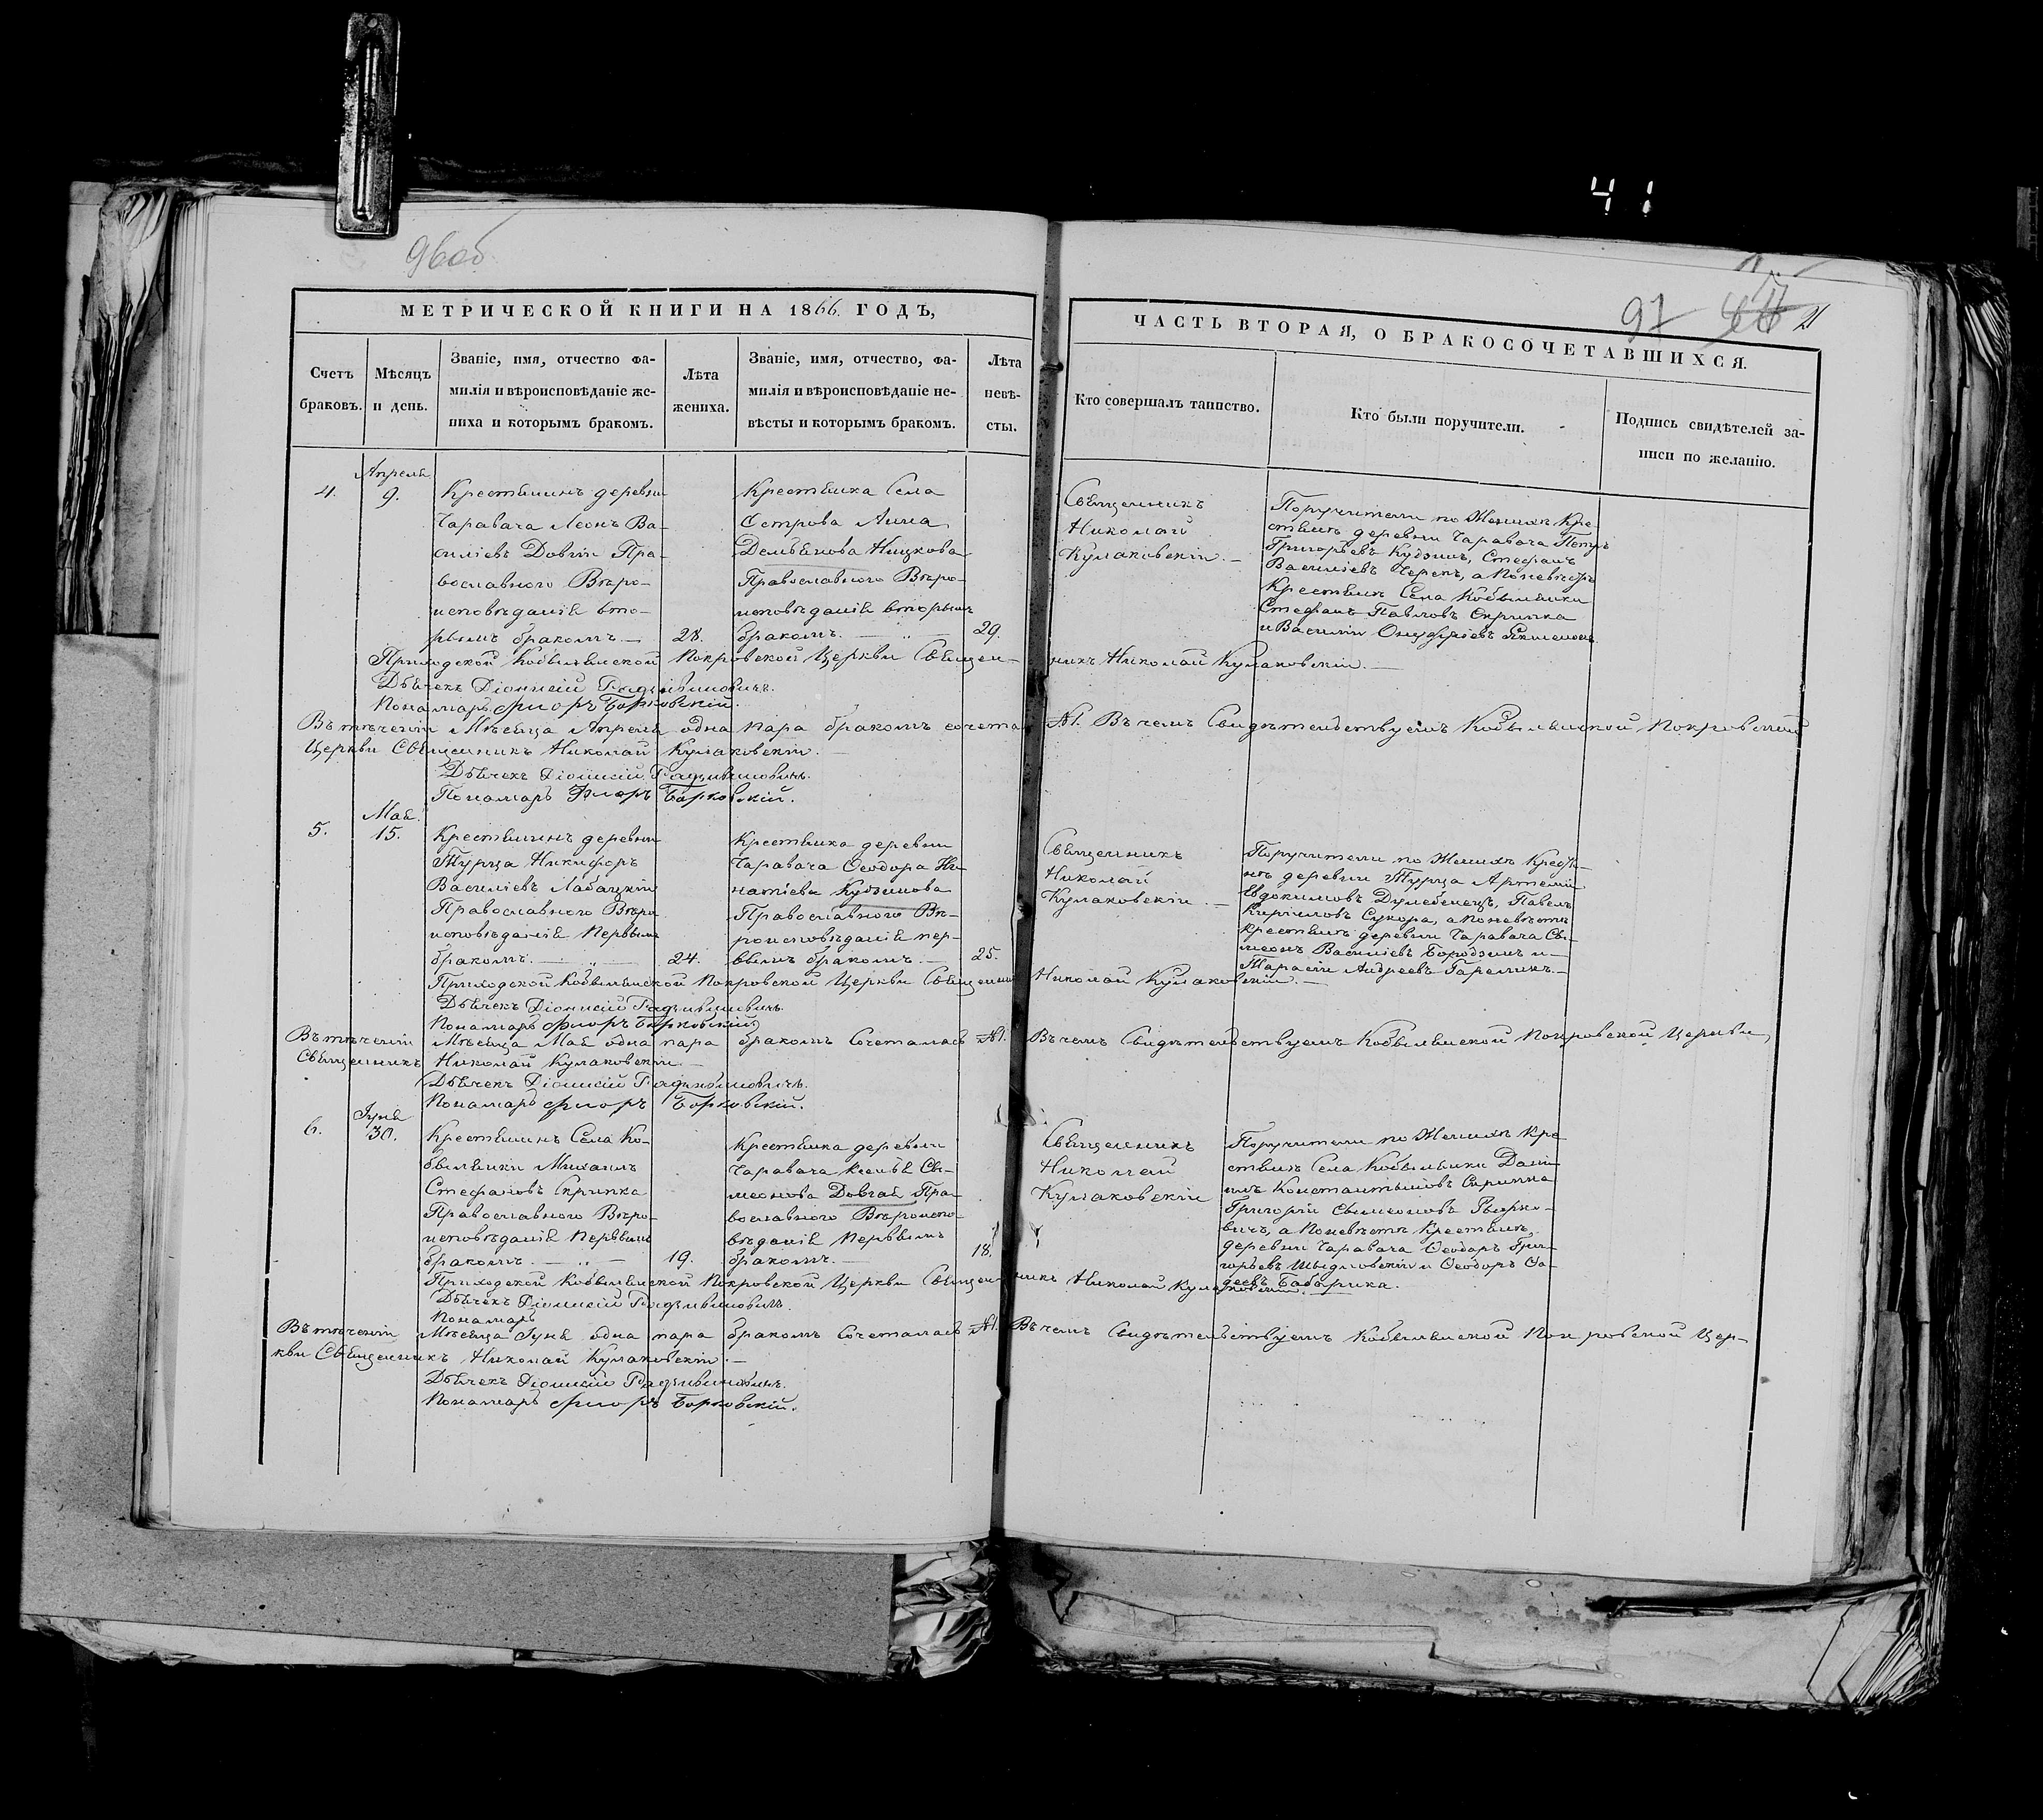 41
96 об
97
21
МЕТРИЧЕСКОЙ КНИГИ НА 1866. ГОДЪ,
Счетъ браковъ.
Мѣсяцъ и день.
Званіе, имя, отчество фа-
милія и вѣроисповѣданіе же-
ниха и которымъ бракомъ.
Лѣта жениха.
Званіе, имя, отчество, фа-
милія и вѣроисповѣданіе не-
вѣсты и которымъ бракомъ.
Лѣта невѣ-
сты.
ЧАСТЬ ВТОРАЯ, О БРАКОСОЧЕТАВШИХСЯ.
Кто совершалъ таинство.
Кто были поручители.
Подпись свидѣтелей за-
писи по желанію.
4.
Апреля
9.
Крестьянинъ деревни
Чаравача Леонъ Ва-
силіевъ Довгій Пра-
вославного Вѣро-
исповѣданія вто-
рымъ бракомъ.—
28.
Крестьянка Села
Острова Анна
Демьянова Ницкова
Православного Вѣро-
исповѣданія вторымъ
бракомъ.—
29.
Священникъ
Николай
Кулаковскій.—
Поручители по Женихѣ Кре-
стьянъ деревни Чаравача Петръ
Григорьевъ Кудзинъ, Стефанъ
Василіевъ Черепъ, а по невѣстѣ
Крестьянъ Села Кобылянки
Стефанъ Павловъ Скрипка
и Василій Онуфріевъ
Приходской Кобылянской Покровской Церкви Священ-
никъ Николай Кулаковскій.—
Дьячекъ Діонисій Радзивиновичъ.
Пономарь Флоръ Борковскій.
Въ теченіи Мѣсяца Апреля одна пара бракомъ сочета №1. Въ чемъ Свидѣтельствуемъ Кобылянской Покровской
Церкви Священникъ Николай Кулаковскій.—
Дьячекъ Діонисій Радзивиновичъ.
Пономарь Флоръ Борковскій.
5.
Мая.
15.
Крестьянинъ деревни
Турца Никифоръ
Василіевъ Лабацкій
Православного Вѣро
исповѣданія Первымъ
бракомъ.—
24.
Крестьянка деревни
Чаравача Ѳеодора Иг-
натіева Кудзинова
Православного Вѣ-
роисповѣданія пер-
вымъ бракомъ.—
25.
Священникъ
Николай
Кулаковскій.—
Поручители по Женихѣ Кресть-
нъ деревни Турца Артемій
Евдокимовъ Дулебенецъ, Павелъ
Кириловъ Сукора, а по невѣстѣ
крестьянъ деревни Чаравача Сы-
меонъ Василіевъ Бородзинъ и
Тарасій Андреевъ Гарелинъ.—
Приходской Кобылянской Покровской Церкви Священникъ Николай Кулаковскій.—
Дьячекъ Діонисій Радзивиновичъ.
Пономарь Флоръ Борковскій
Въ теченіи Мѣсяца Мая одна пара бракомъ Сочеталась №1. Въ чемъ Свидѣтельствуемъ Кобылянской Покровской Церкви,
Священникъ Николай Кулаковскій.—
Дьячекъ Діонисій Радзивиновичъ.
Пономарь Флоръ Борковскій.
6.
Іуня
30.
Крестьянинъ Села Ко-
былянки Михаилъ
Стефановъ Скрипка
Православного Вѣро-
исповѣданія Первымъ
бракомъ.—
19.
Крестьянка деревни
Чаравача Ксенья Сы-
меонова Довгая Пра-
вославного Вѣроиспо-
вѣданія Первымъ
бракомъ.—
18.
Священникъ
Николай
Кулаковскій
Поручители по Женихѣ Кре
стьянъ Села Кобылянки Дани-
илъ Константиновъ Скрипка
Григорій Сымеоновъ
а по невѣстѣ Крестьянъ
деревни Чаравача Ѳеодоръ Гри-
горьевъ Шыдловскій и Ѳеодоръ Ѳа-
деевъ Бабарика.
Приходской Кобылянской Покровской Церкви Священ-
никъ Николай Кулаковскій.
Дьячекъ Діонисій Радзивиновичъ.
Пономарь
Въ теченіи Мѣсяца Іуня одна пара бракомъ Сочеталась №1. Въ чемъ Свидѣтельствуемъ Кобылянской Покровской Цер-
кви Священникъ Николай Кулаковскій.—
Дьячекъ Діонисій Радзивиновичъ.
Пономарь Флоръ Борковскій.